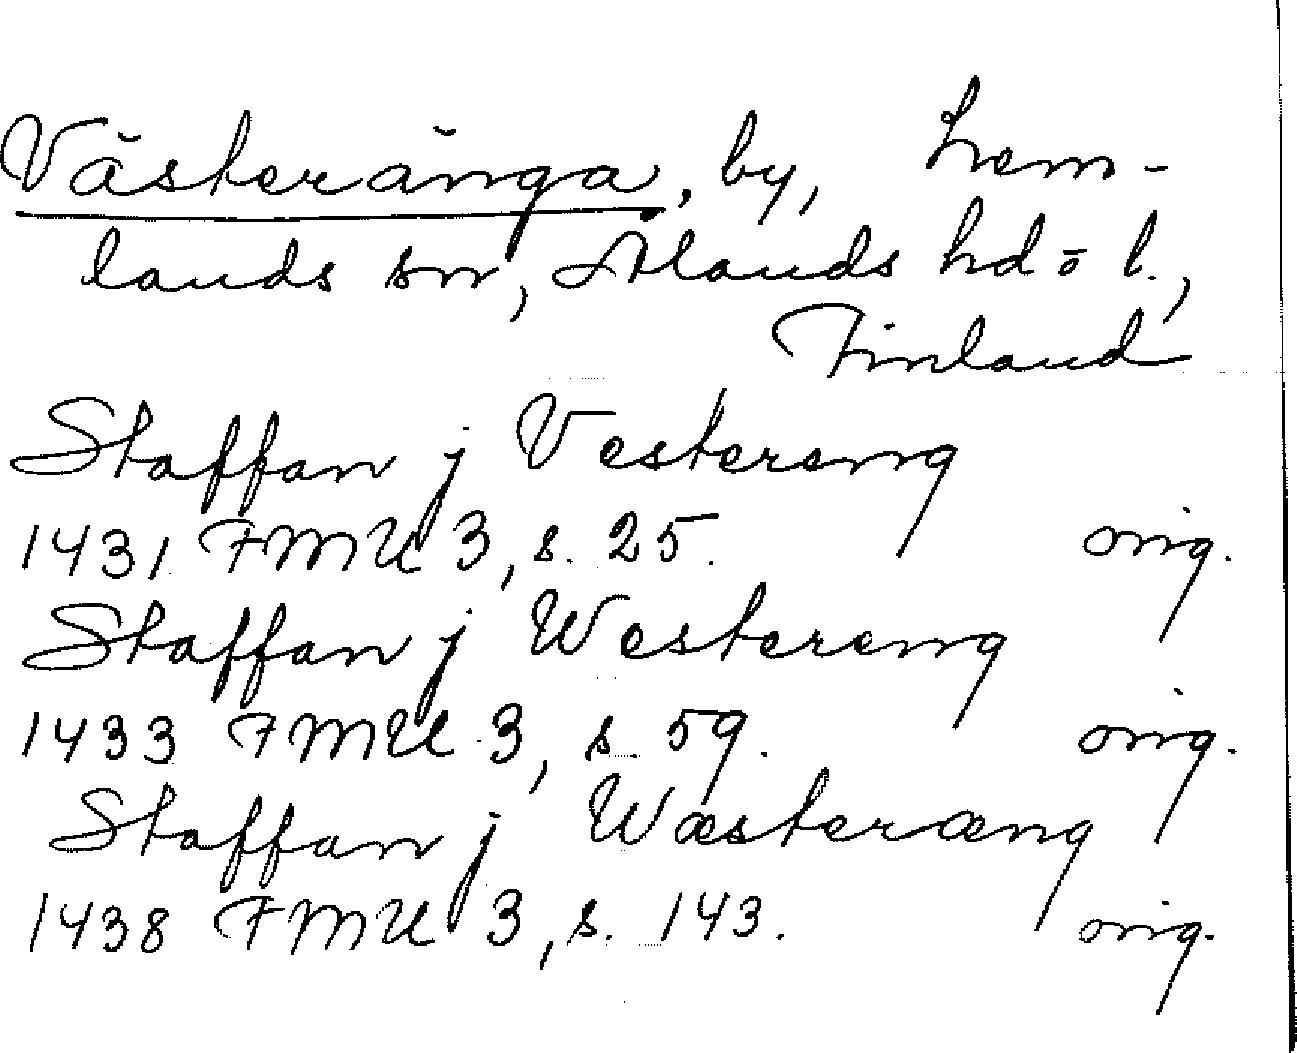 Västeränga, by, Lem-
lands sn, Ålands hd o l.,
Finland
Staffan j Vestereng
1431 FMU 3, s. 25. orig.
Staffan j Westereng
1433 FMU 3, s. 59. orig.
Staffan j Wæsteræng
1438 FMU 3, s. 143. orig.